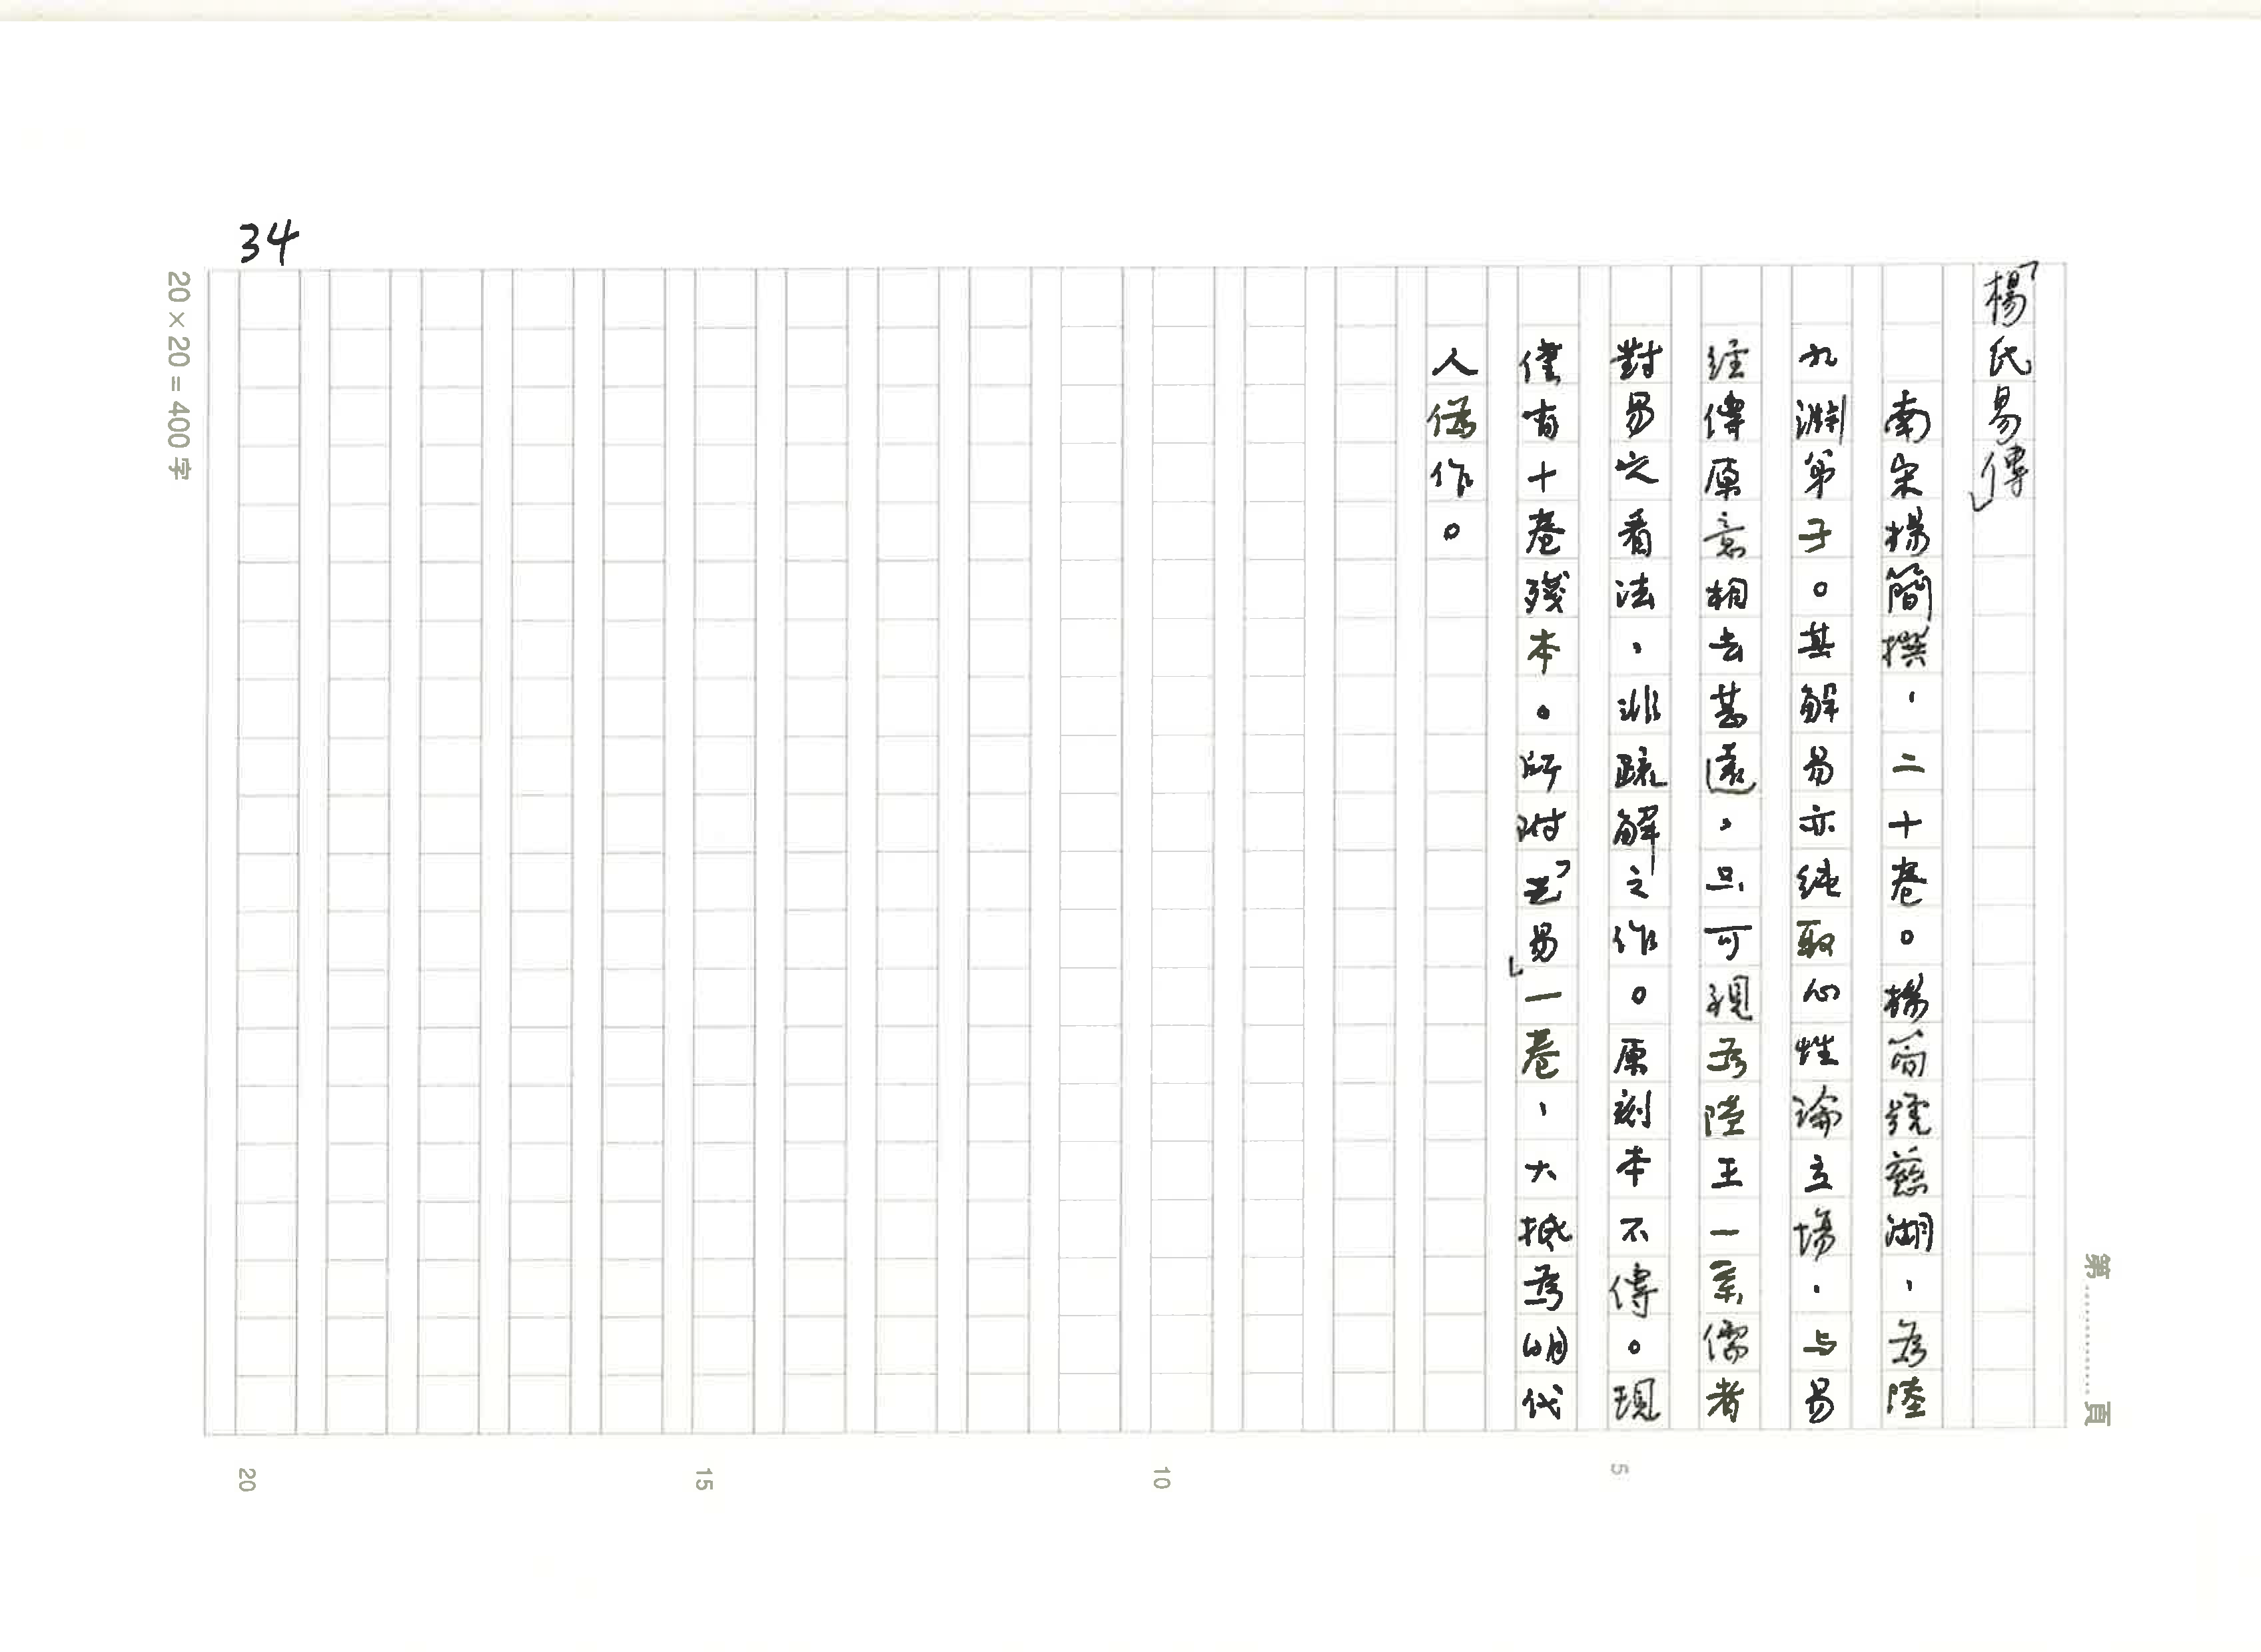 「楊氏易傳」
南宋楊簡撰，二十卷。楊简號慈湖，為陸
九淵弟子。其解易亦純取心性論立場，与易
經傳原意相去甚遠，只可視為陸王一系儒者
對易之看法，非疏解之作。原刻本不傳。現
僅有十卷殘本。所附「己易」一卷，大抵為明代
人偽作。
34
20×20=400字
第............頁
5
10
15
20